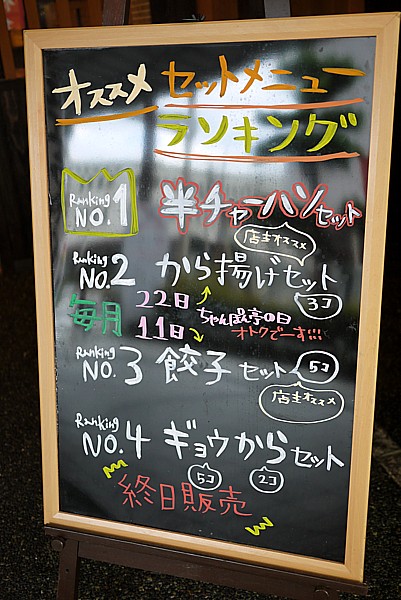 オススメ セットメニュー
ランキング
Ranking NO.1 半チャーハンセット
店主オススメ
Ranking NO.2 から揚げセット
3コ
毎月 22日 ちゃん品亭の日
11日 オトクでーす!!!
Ranking NO.3 餃子セット 5コ
店主オススメ
Ranking NO.4 ギョウからセット
5コ 2コ
終日販売